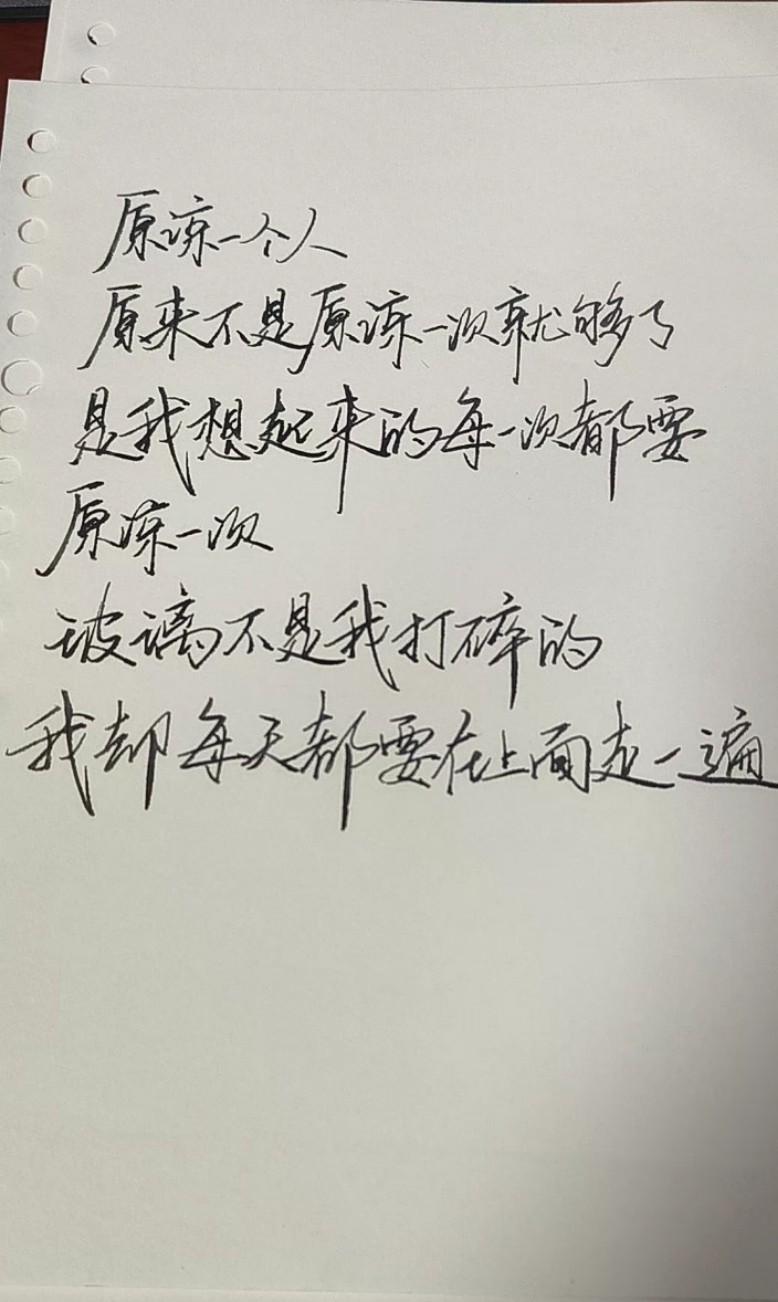 原谅一个人
原来不是原谅一次就够了
是我想起来的每一次都要
原谅一次
玻璃不是我打碎的
我却每天都要在上面走一遍